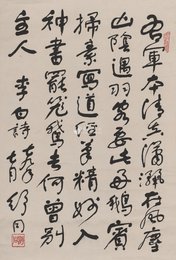 右軍本清真瀟灑在風塵
山陰遇羽客要此好鵝賓
掃素寫道經筆精妙入
神書罷籠鵝去何曾別
主人 李白詩
舒同